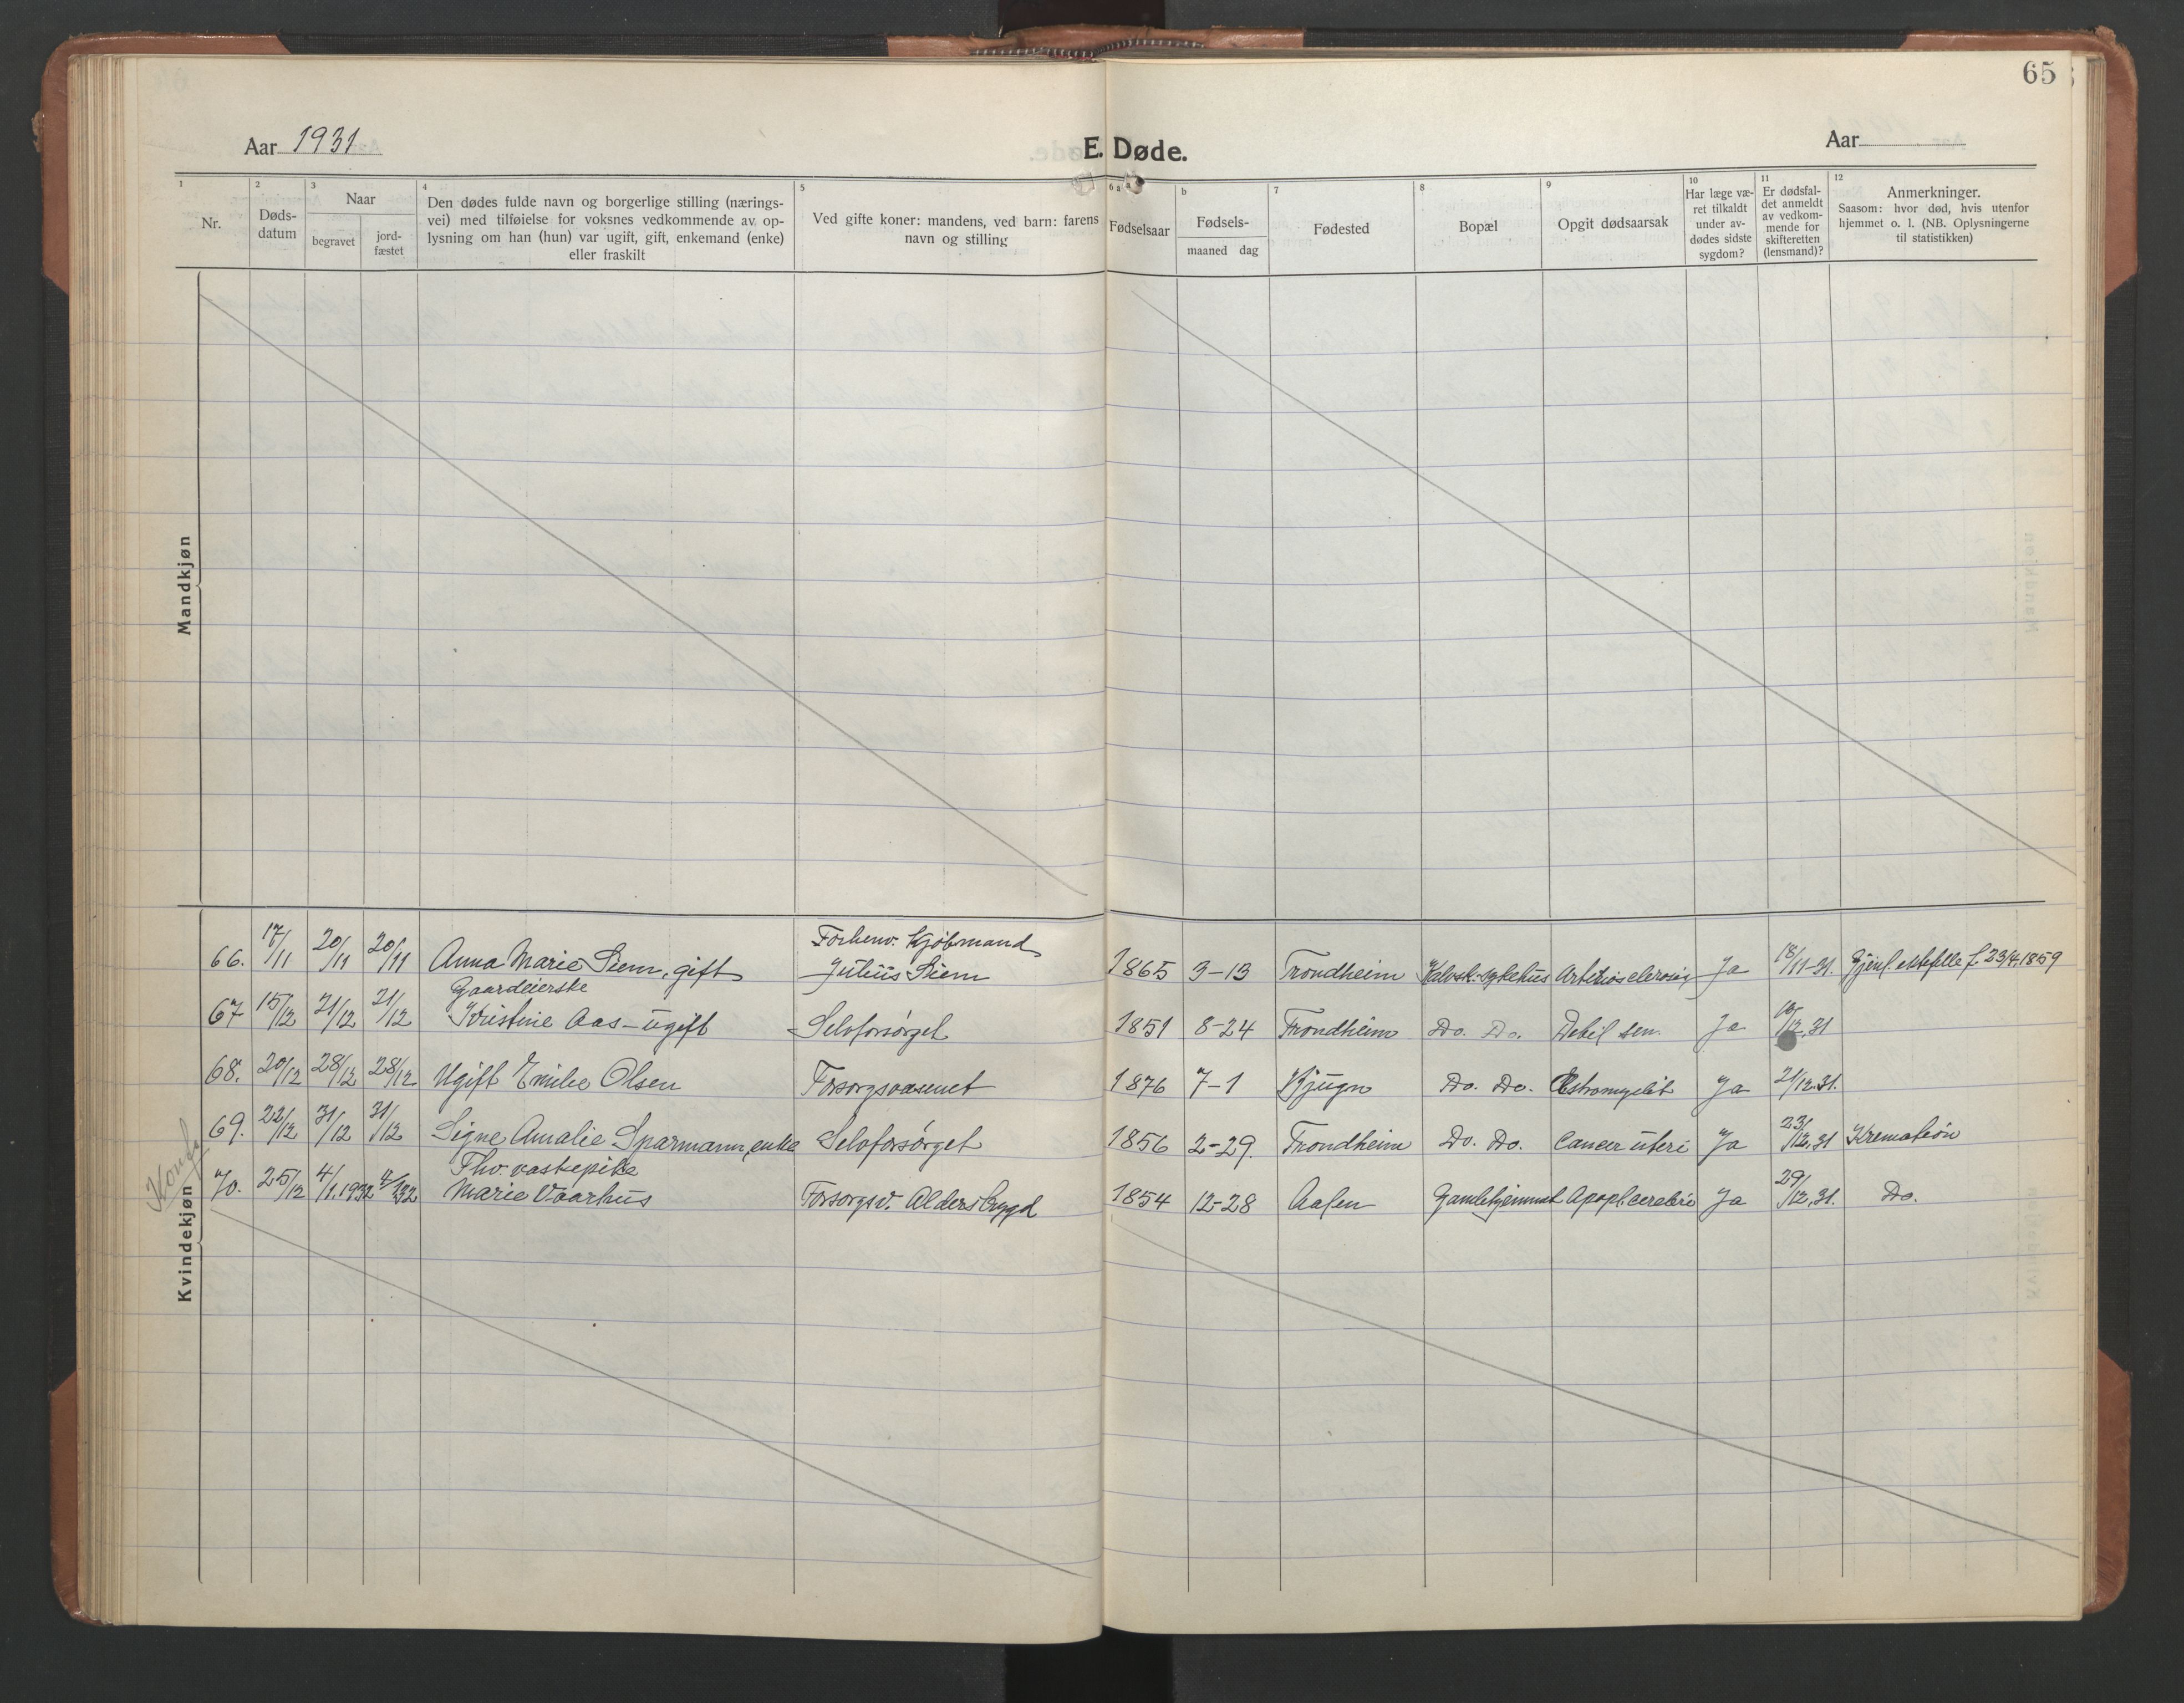 65
Aar 1931
E. Døde.
Aar
1 2 3 4 5 6 a b 7 8 9 10 11 12
Nr.
Døds-
datum
Naar
begravet
jord-
fæstet
Den dødes fulde navn og borgerlige stilling (nærings-
vei) med tilføielse for voksnes vedkommende av op-
lysning om han (hun) var ugift, gift, enkemand (enke)
eller fraskilt
Ved gifte koner: mandens, ved barn: farens
navn og stilling
Fødselsaar
Fødsels-
maaned dag
Fødested
Bopæl
Opgit dødsaarsak
Har læge væ-
ret tilkaldt
under av-
dødes sidste
sygdom?
Er dødsfal-
det anmeldt
av vedkom-
mende for
skifteretten
(lensmand)?
Anmerkninger.
Saasom: hvor død, hvis utenfor
hjemmet o. l. (NB. Oplysningerne
til statistikken)
Mandkjøn
Kvindekjøn
66. 17/11 20/11 20/11 Anna Marie Siem, gift Forhenv. Kjøbmand Julius Siem 1865 3-13 Trondheim Kalvsk. sykehus Arteriosclerosis Ja 18/11-31. Gjenl. ektefelle f. 23/4 1859
67 15/12 21/12 21/12 Gaardeierske Kristine Aas - ugift Selvforsørget 1851 8-24 Trondheim Do. Do. Debil sen. Ja /12.31
68. 20/12 28/12 28/12. Ugift Emilie Olsen Forsorgsvæsenet 1876 7-1 Bjugn Do. Do. Ja 21/12.31.
69. 22/12 31/12 31/12 Signe Amalie Sparmann, enke Selvforsørget 1856 2-29. Trondheim Do. Do. Cancer uteri Ja 23/12.31 Kremation
70. 25/12 4/1.1932 4/1.32 Fhv. vaskepike Marie Vaarhus Forsorgsv. Alderstrygd 1854 12-28 Aalen Gamlehjemmet Apopl. cerebri Ja 29/12.31. Do.